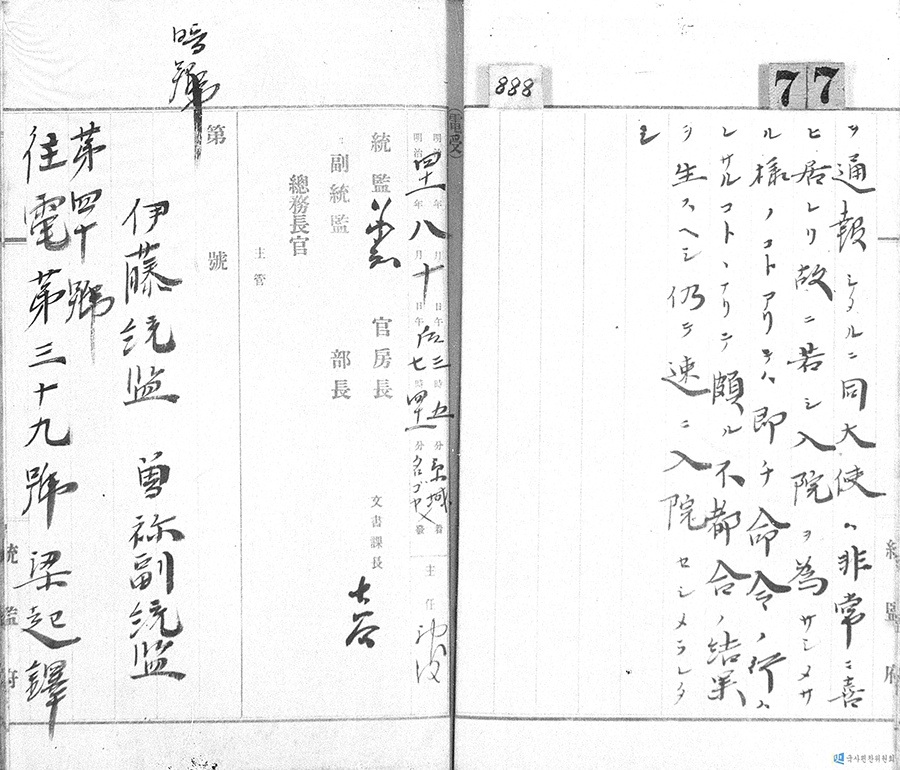 888
77
ヲ通報シタルニ同大使ハ非常ニ喜
ヒ居レリ故ニ若シ入院ヲ為サシメサ
ル様ノコトアリテハ即チ命令ノ行ハ
レサルコトヽナリテ頗ル不都合ノ結果
ヲ生スヘシ仍テ速ニ入院セシメラレタ
シ
統監府
(電受)
明治四一年八月十日午后三時五分京城着
明治年月日午后七時四一分名ゴヤ發
主任
統監 官房長
副統監 部長
文書課長 大谷
總務長官
主管
第 號
暗號
伊藤統監 曽祢副統監
第四十號
往電第三十九號梁起鐸
統監府
국사편찬위원회